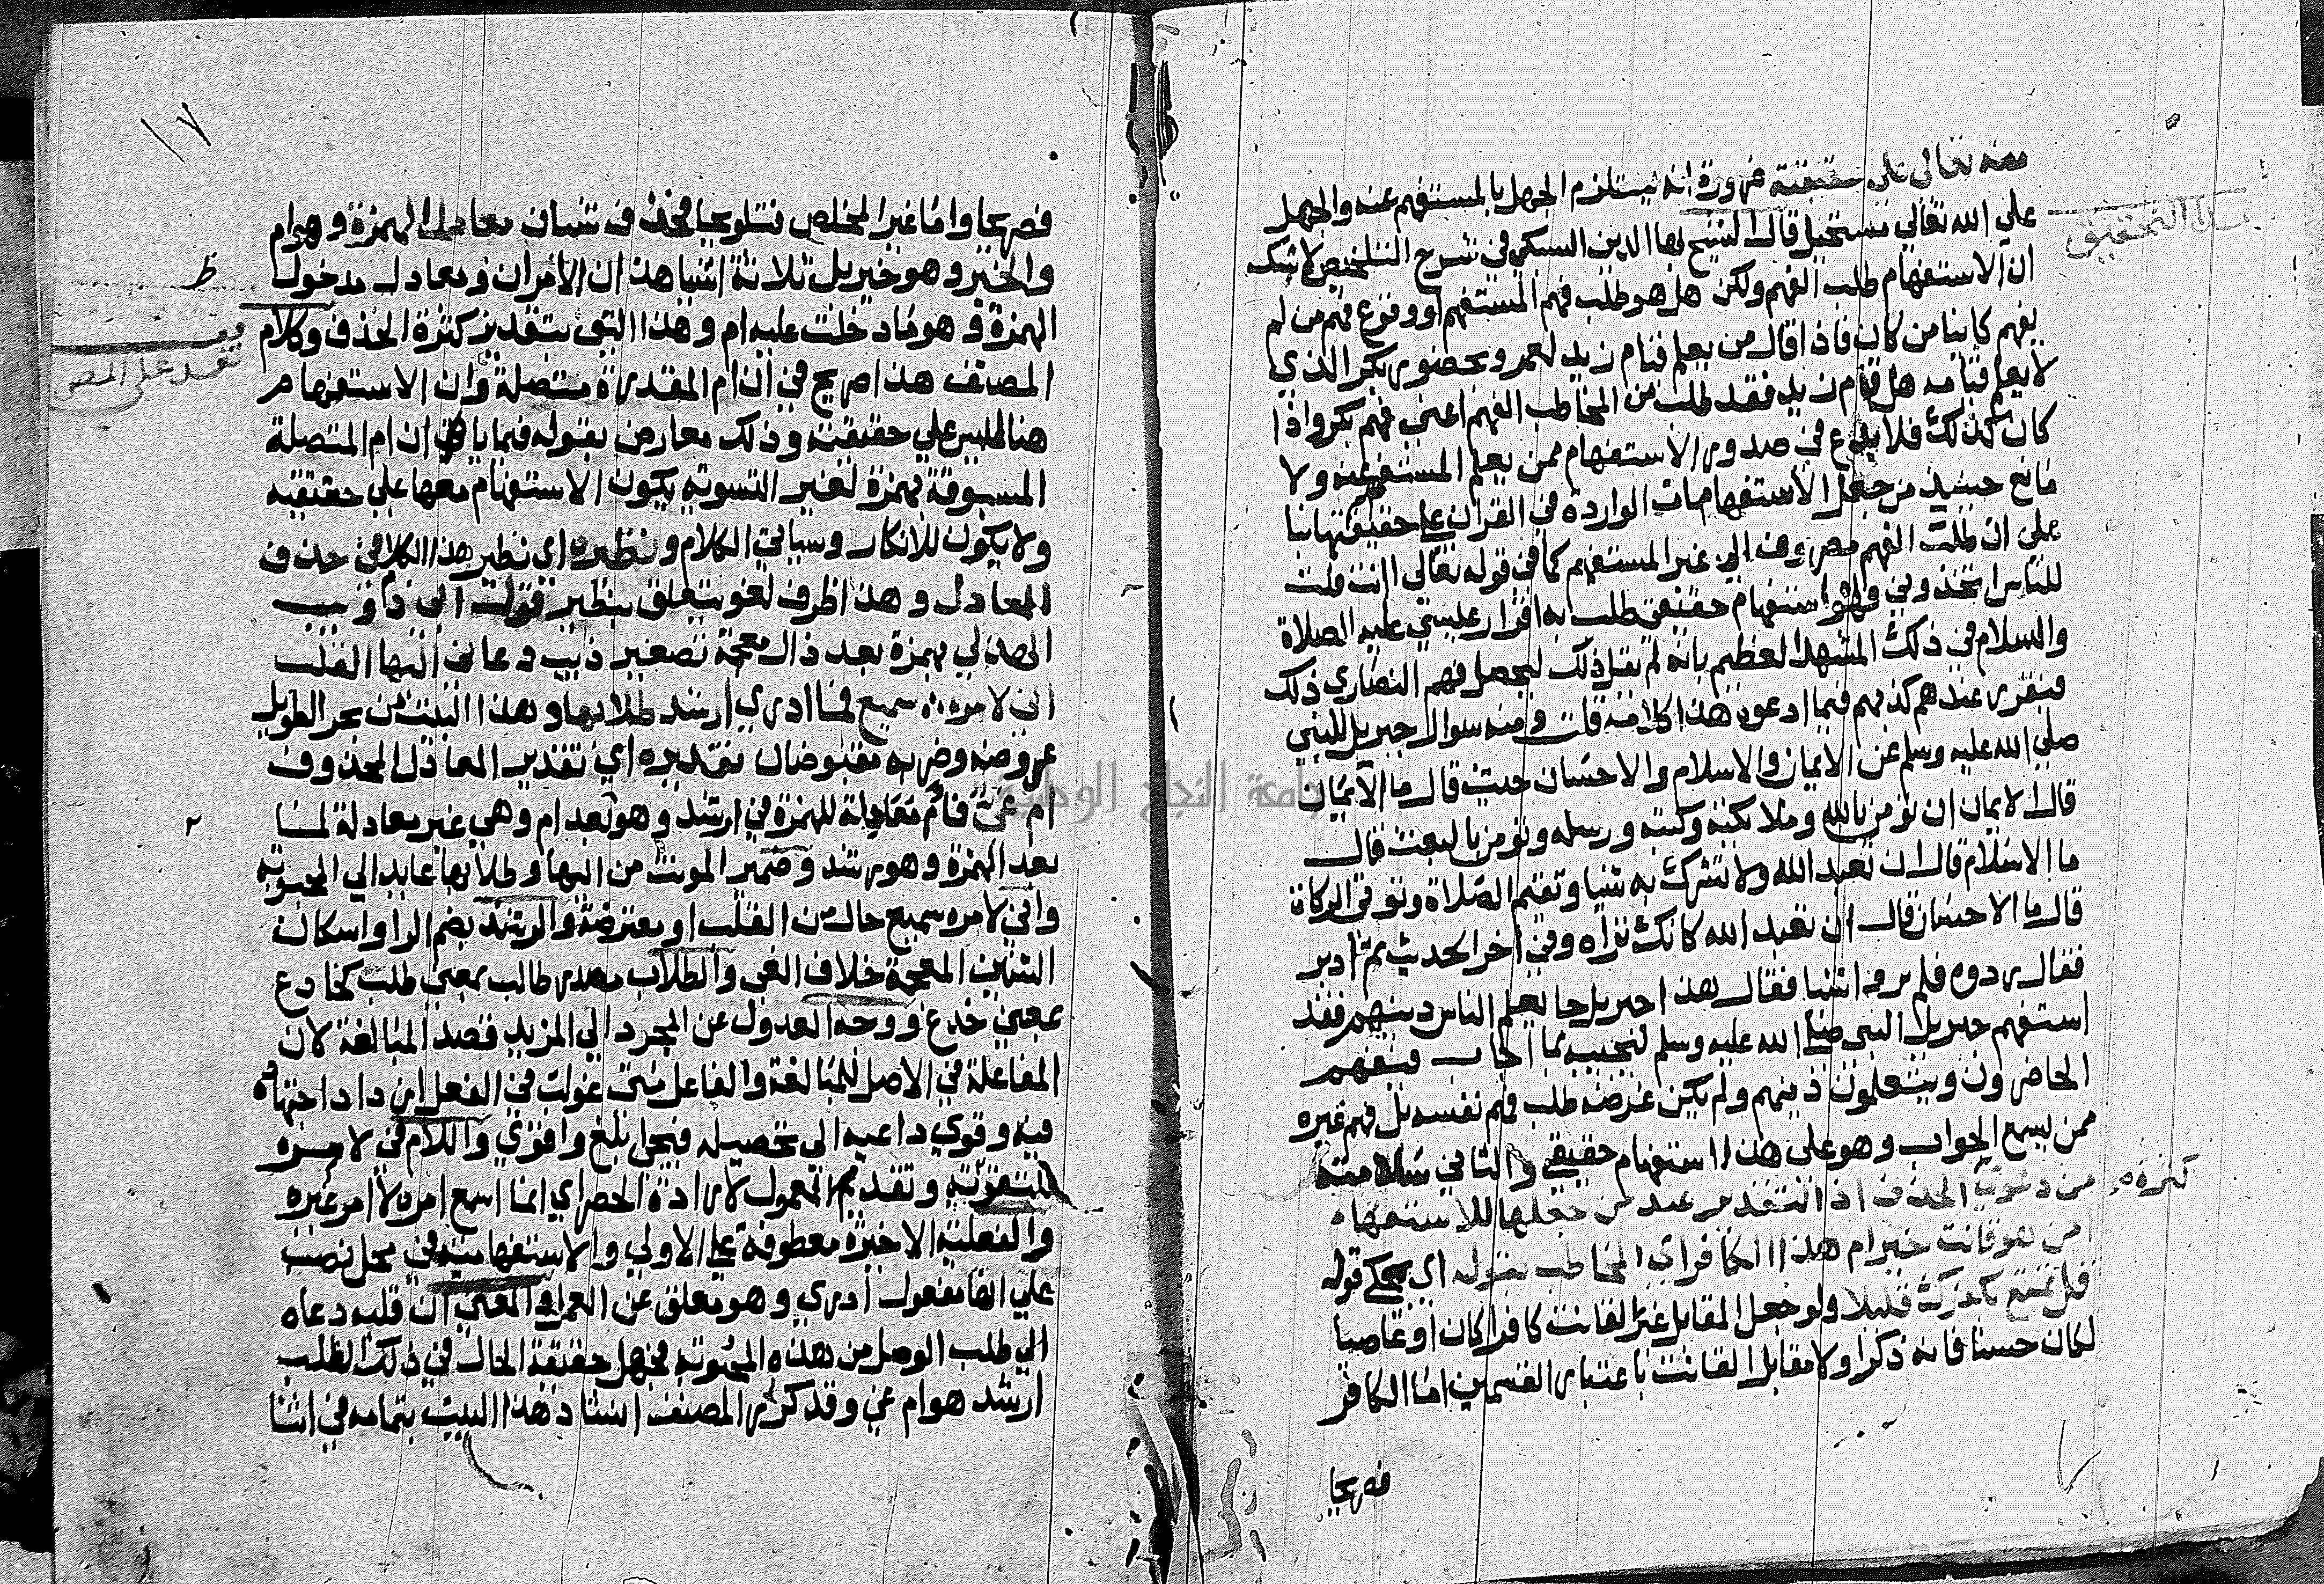 منه تعالى على حقيقته ضرورة انه يستلزم الجهل بالمستفهم عنه والجهل
على الله تعالي مستحيل قال الشيخ بها الدين السبكي في شرح التلخيص لا شك
ان الاستفهام طلب الفهم ولكن هل هو طلب فهم المستفهم او وقوع فهم من لم
يفهم كاينا من كان فاذا قال من يعلم قيام زيد لعمرو بحضور بكر الذي
لا يعلم قيامه هل قام زيد فقد طلب من المخاطب الفهم اعني فهم بكر واذا
كان كذلك فلا بدع في صدور الاستفهام ممن يعلم المستفهم عنه ولا
مانع حينيذ من جعل الاستفهامات الواردة في القران على حقيقتها بنا
على ان طلب الفهم مصروف الى غير المستفهم كما في قوله تعالى اانت قلت
للناس اتخذوني فهو استفهام حقيقي طلب به اقرار عيسى عليه الصلاة
والسلام في ذلك المشهد العظيم بانه لم يقل ذلك ليحصل فهم النصاري ذلك
فيتقرر عندهم كذبهم فيما ادعوه هذا كلامه قلت ومنه سوال جبريل للنبي
صلى الله عليه وسلم عن الايمان والاسلام والاحسان حيث قال ما الايمان
قال الايمان ان تؤمن بالله وملايكته وكتبه ورسله وتومن بالبعث قال
ما الاسلام قال ان تعبد الله ولا تشرك به شيا وتقيم الصلاة وتوتي الزكاة
قال ما الاحسان قال ان تعبد الله كانك تراه وفي اخر الحديث ثم ادبر
فقال ردوه فلم يروا شيا فقال هذا جبريل جا يعلم الناس دينهم فقد
استفهم جبريل النبي صلى الله عليه وسلم ليجيبه بما اجاب فيفهم
الحاضرون ويتعلمون دينهم ولم يكن غرضه طلب فهم نفسه بل فهم غيره
ممن يسمع الجواب وهو على هذا استفهام حقيقي والثاني سلامته
من دعوى الحذف اذ التقدير عند من جعلها للاستفهام
امن هو قانت خير ام هذا الكافر اي المخاطب بقوله اي بحكي قوله
قل تمتع بكفرك قليلا ولو جعل المقابل غير القانت كافرا كان او عاصيا
لكان حسنا فانه ذكر اولا مقابل القانت باعتبار القسمين اما الكافر
فصريحا
كثرة
التحقيق
١٧
فصريحا واما غير المخلص فتلويحا فحذف شيان معادل الهمزة وهو ام
والخبر وهو خير بل ثلاثة اشيا هذان الامران ومعادل مدخول
الهمزة وهو ما دخلت عليه ام وهذا التي بتقدير كثرة الحذف وكلام
المصنف هذا صريح في ان ام المقدرة متصلة وان الاستفهام
هنا ليس على حقيقته وذلك معارض بقوله فيما ياتي ان ام المتصلة
المسبوقة بهمزة لغير التسوية يكون الاستفهام معها على حقيقته
ولا يكون للانكار وسياتي الكلام ونظيره اي نظير هذا الكلام في حذف
المعادل وهذا ظرف لغو يتعلق بنظير قول ابي ذؤيب
الهذلي بهمزة بعد ذال معجمة تصغير ذيب دعاني اليها القلب
اني لامره سميع فما ادري ارشد طلابها وهذا البيت من بحر الطويل
عروضه وضربه مقبوضان تقديره اي تقدير المعادل المحذوف
ام غي فام معادلة للهمزة في ارشد وهو بعد ام وهي غير معادلة لما
بعد الهمزة وهو رشد وضمير المونث من اليها وطلابها عايد الي المحبوبة
واني لامره سميع حال من القلب او معترضة والرشد بضم الرا واسكان
الشين المعجمة خلاف الغي والطلاب مصدر طالب بمعنى طلب كخادع
بمعنى خدع ووجه العدول عن المجرد الي المزيد قصد المبالغة لان
المفاعلة في الاصل للمبالغة والفاعل متى غولب في الفعل زاد اجتهاده
فيه وقوي داعيه الي تحصيله فيجي ابلغ واقوي واللام في لامره
للتقوية وتقديم المعمول لارادة الحصر اي انما اسمع امره لا امر غيره
والفعلية الاخيرة معطوفة على الاولي والاستفهامية في محل نصب
علي انها مفعول ادري وهو معلق عن العمل والمعنى ان قلبه دعاه
الي طلب الوصل من هذه المحبوبة فجهل حقيقة الحال في ذلك الطلب
ارشد هو ام غي وقد كرر المصنف انشاد هذا البيت بتمامه في اثنا
ظ
قف
تعقد على المص
جامعة النجاح الوطنية